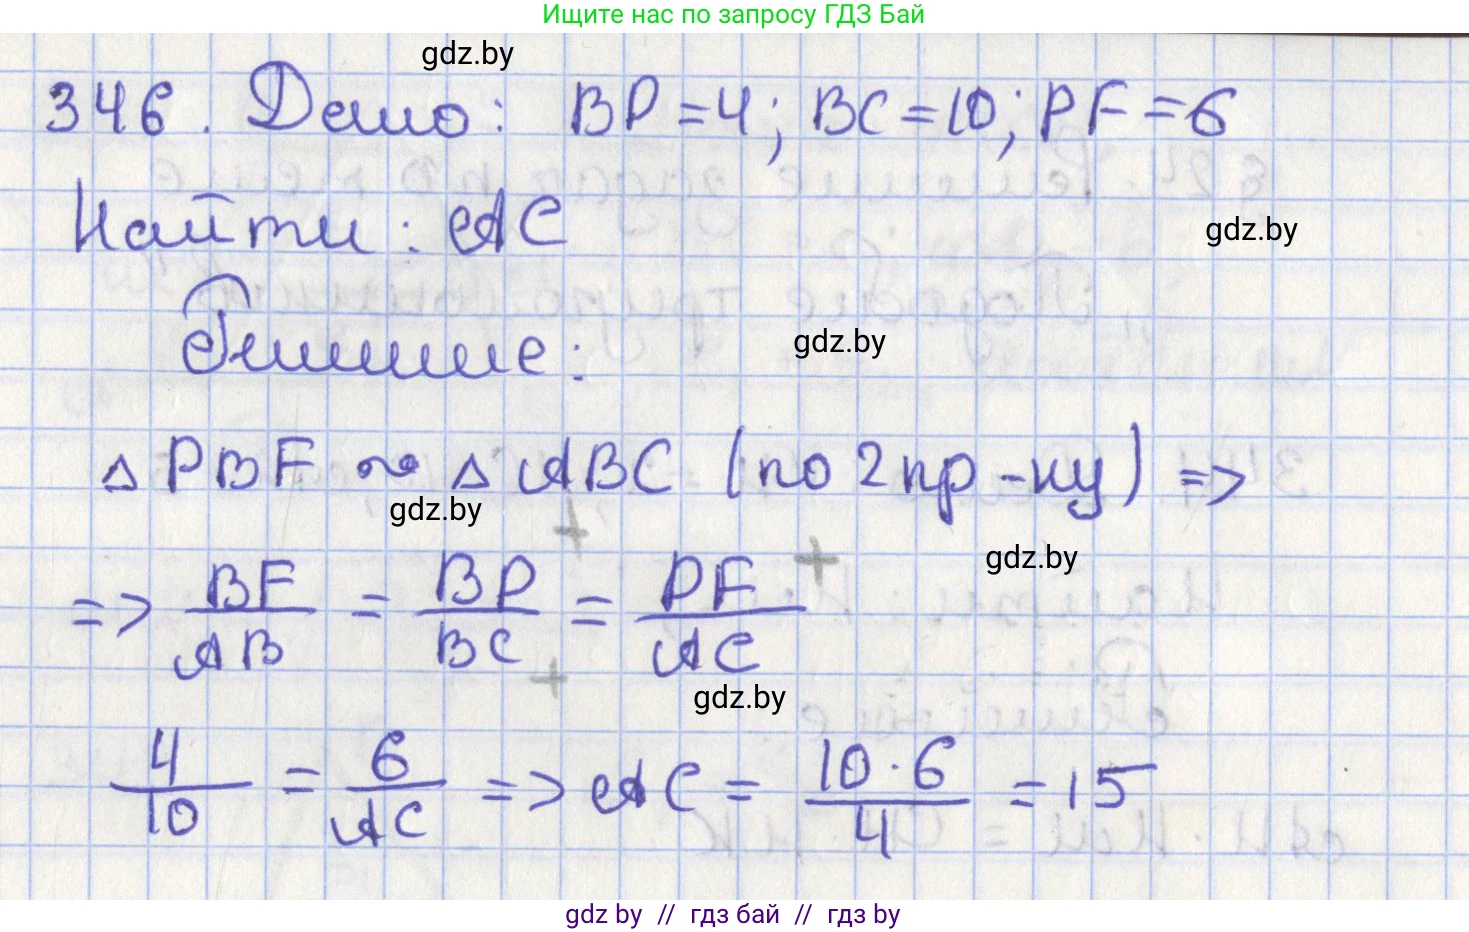 Ищите нас по запросу ГДЗ Бай
gdz.by
346. Дано: BP = 4; BC = 10; PF = 6
Найти: AC
gdz.by
Решение:
gdz.by
△ PBF ~ △ ABC (по 2 пр-ку) =>
gdz.by
gdz.by
=> BF/AB = BP/BC = PF/AC
gdz.by
4/10 = 6/AC => AC = 10·6/4 = 15
gdz by // гдз бай // гдз by